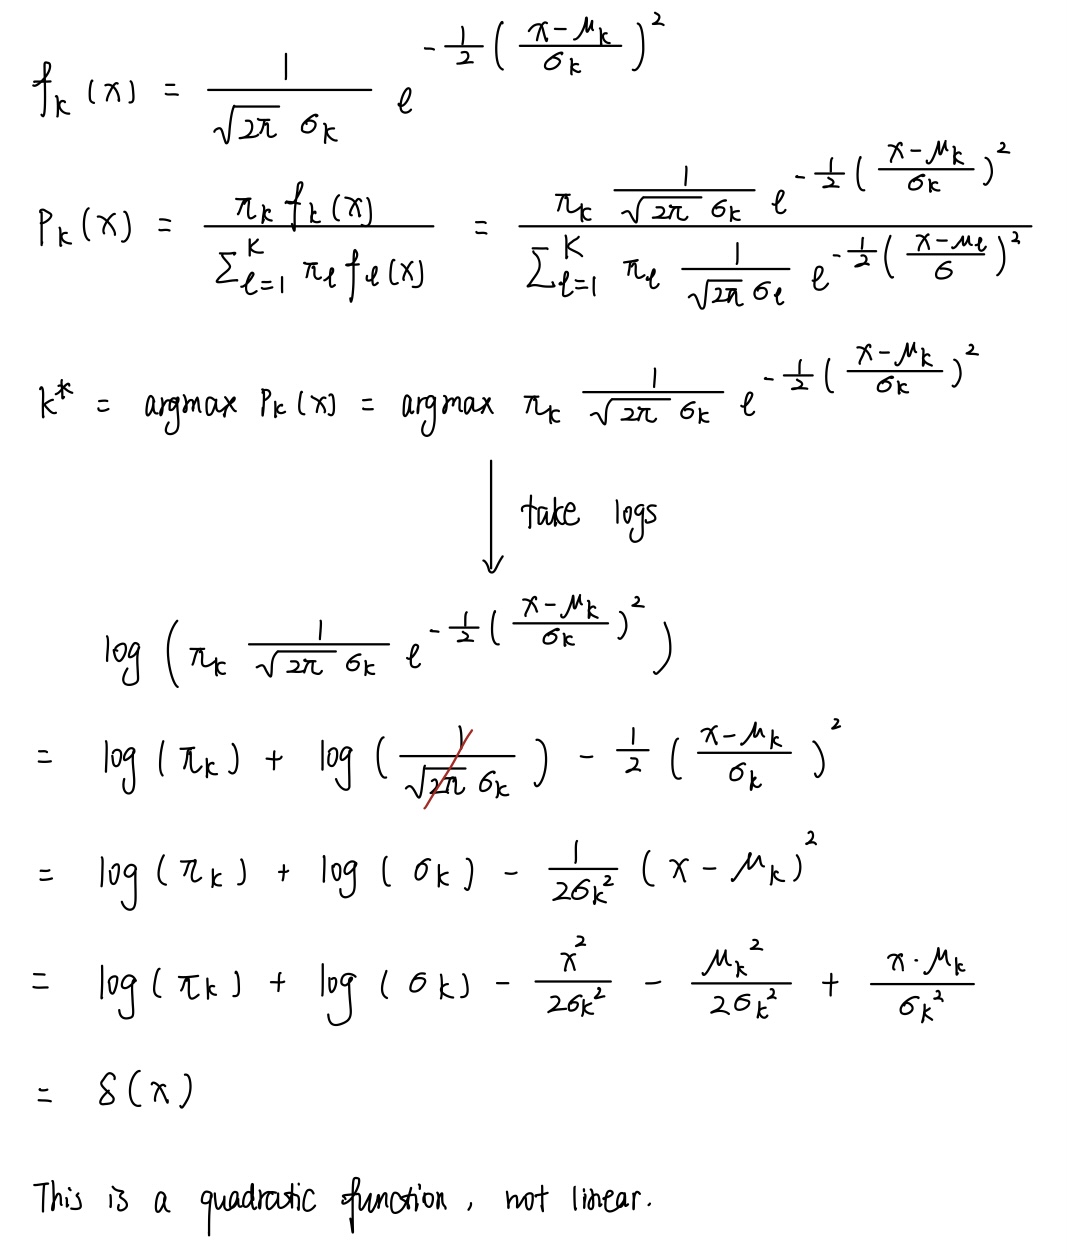 f_k(x) = \frac{1}{\sqrt{2π} σ_k} e^{-\frac{1}{2}(\frac{x-μ_k}{σ_k})^2}
P_k(x) = \frac{π_k f_k(x)}{\sum_{ℓ=1}^{K} π_ℓ f_ℓ(x)} = \frac{π_k \frac{1}{\sqrt{2π} σ_k} e^{-\frac{1}{2}(\frac{x-μ_k}{σ_k})^2}}{\sum_{ℓ=1}^{K} π_ℓ \frac{1}{\sqrt{2π} σ_ℓ} e^{-\frac{1}{2}(\frac{x-μ_ℓ}{σ})^2}}
k* = argmax P_k(x) = argmax π_k \frac{1}{\sqrt{2π} σ_k} e^{-\frac{1}{2}(\frac{x-μ_k}{σ_k})^2}
↓ take logs
log (π_k \frac{1}{\sqrt{2π} σ_k} e^{-\frac{1}{2}(\frac{x-μ_k}{σ_k})^2})
= log(π_k) + log(\frac{1}{\sqrt{2π} σ_k}) - \frac{1}{2}(\frac{x-μ_k}{σ_k})^2
= log(π_k) + log(σ_k) - \frac{1}{2σ_k^2}(x-μ_k)^2
= log(π_k) + log(σ_k) - \frac{x^2}{2σ_k^2} - \frac{μ_k^2}{2σ_k^2} + \frac{x·μ_k}{σ_k^2}
= δ(x)
This is a quadratic function, not linear.